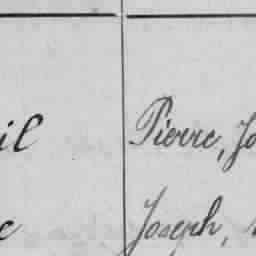 il Pierre, Jo
e Joseph,